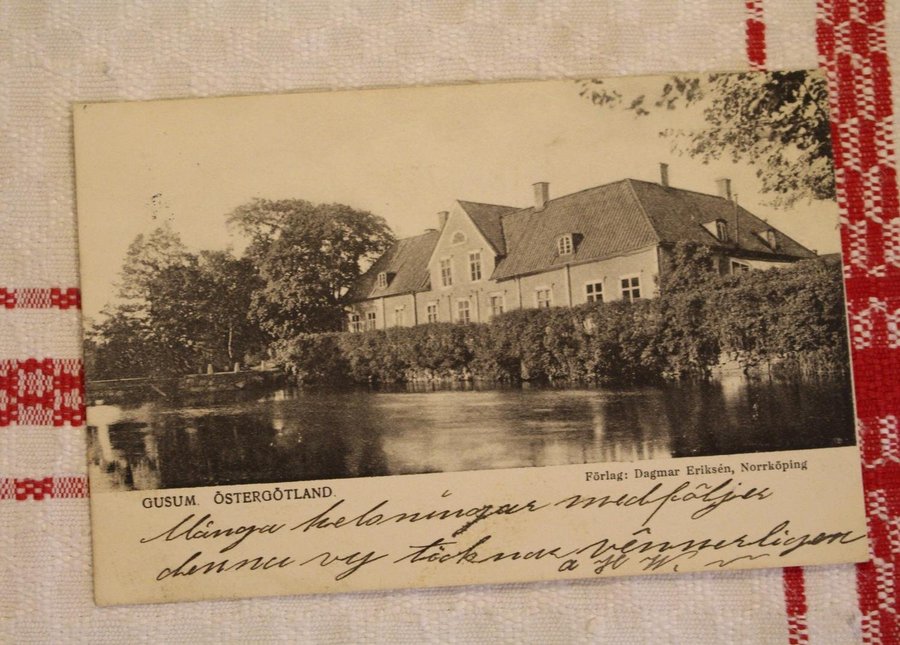 GUSUM. ÖSTERGÖTLAND.
Förlag: Dagmar Eriksén, Norrköping
Många helsningar medföljer
denna vy täcknar vännerligen
H W.